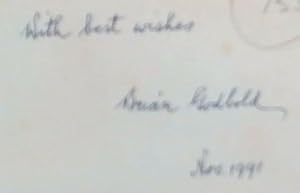 With best wishes
Brian Godbold
Nov. 1991